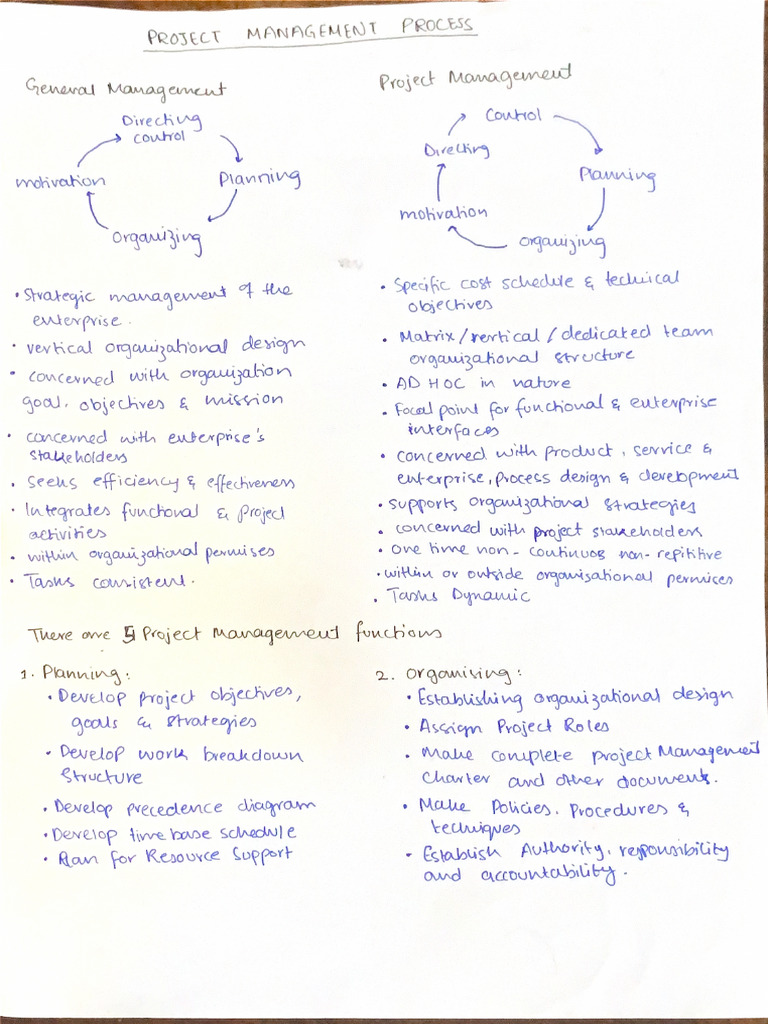 PROJECT MANAGEMENT PROCESS
General Management
Directing
control
Planning
Organizing
motivation
• Strategic management of the
enterprise.
• vertical organizational design
• concerned with organization
goal, objectives & mission
• concerned with enterprise's
stakeholders
• seeks efficiency & effectiveness
• Integrates functional & Project
activities
• within organizational permises
• Tasks consistent.
Project Management
Control
Planning
Organizing
motivation
Directing
• Specific cost schedule & technical
objectives
• Matrix/vertical/dedicated team
organizational structure
• AD HOC in nature
• Focal point for functional & enterprise
interfaces
• concerned with product, service &
enterprise, process design & development
• supports organizational strategies
• concerned with project stakeholders
• one time non-continuos non-repititive
• within or outside organisational permises
• Tasks Dynamic
There are 5 Project Management functions
1. Planning:
• Develop project objectives,
goals & strategies
• Develop work breakdown
structure
• Develop precedence diagram
• Develop time base schedule
• Plan for Resource Support
2. Organising:
• Establishing organizational design
• Assign Project Roles
• Make complete project Management
charter and other document.
• Make Policies, Procedures &
techniques
• Establish Authority, responsibility
and accountability.